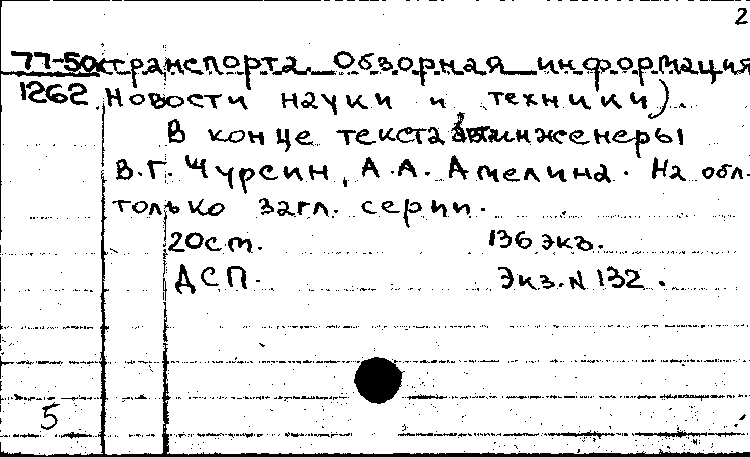 2
77-50к транспорта. Обзорная информация
1262 Новости науки и техники).
В конце текста инженеры
В.Г. Чурсин, А.А. Амелина. На обл.
только загл. серии.
20см. 136 экз.
ДСП. Экз. N 132.
5